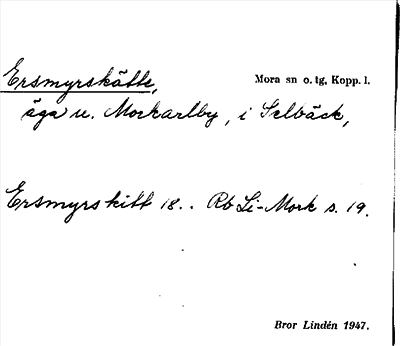 Ersmyrskätte, Mora sn o. tg, Kopp. l.
äga u. Morkarlby, i Selbäck,
Ersmyrskitt 18.. Rb Li-Mork s. 19.
Bror Lindén 1947.